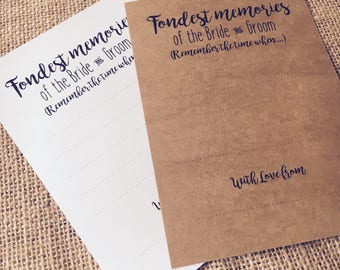 Fondest memories
of the Bride & Groom
(Remember the time when...)
W
Fondest memories
of the Bride & Groom
(Remember the time when...)
With Love from